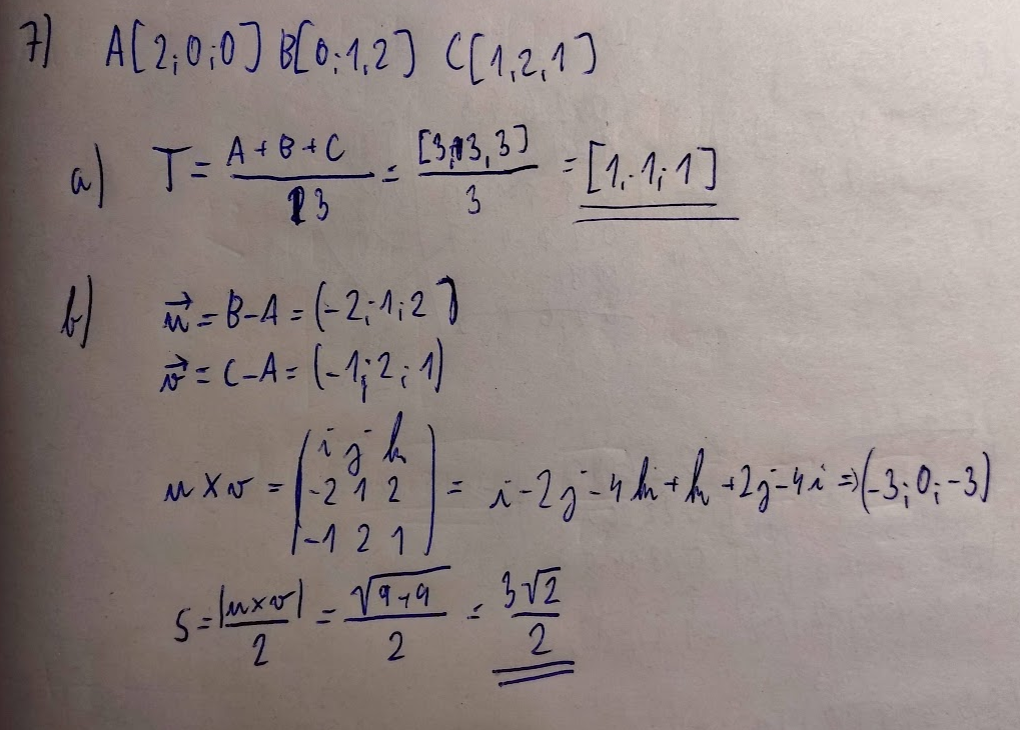 7) A[2;0;0] B[0;1,2] C[1,2,1]
a) T = (A+B+C)/3 = [3,3,3]/3 = [1;1;1]
b) u⃗ = B-A = (-2;1;2)
v⃗ = C-A = (-1;2;1)
u×v = (i j k
-2 1 2
-1 2 1) = i-2j-4k+k+2j-4i ⇒ (-3;0;-3)
S = |u×v|/2 = √(9+9)/2 = 3√2/2